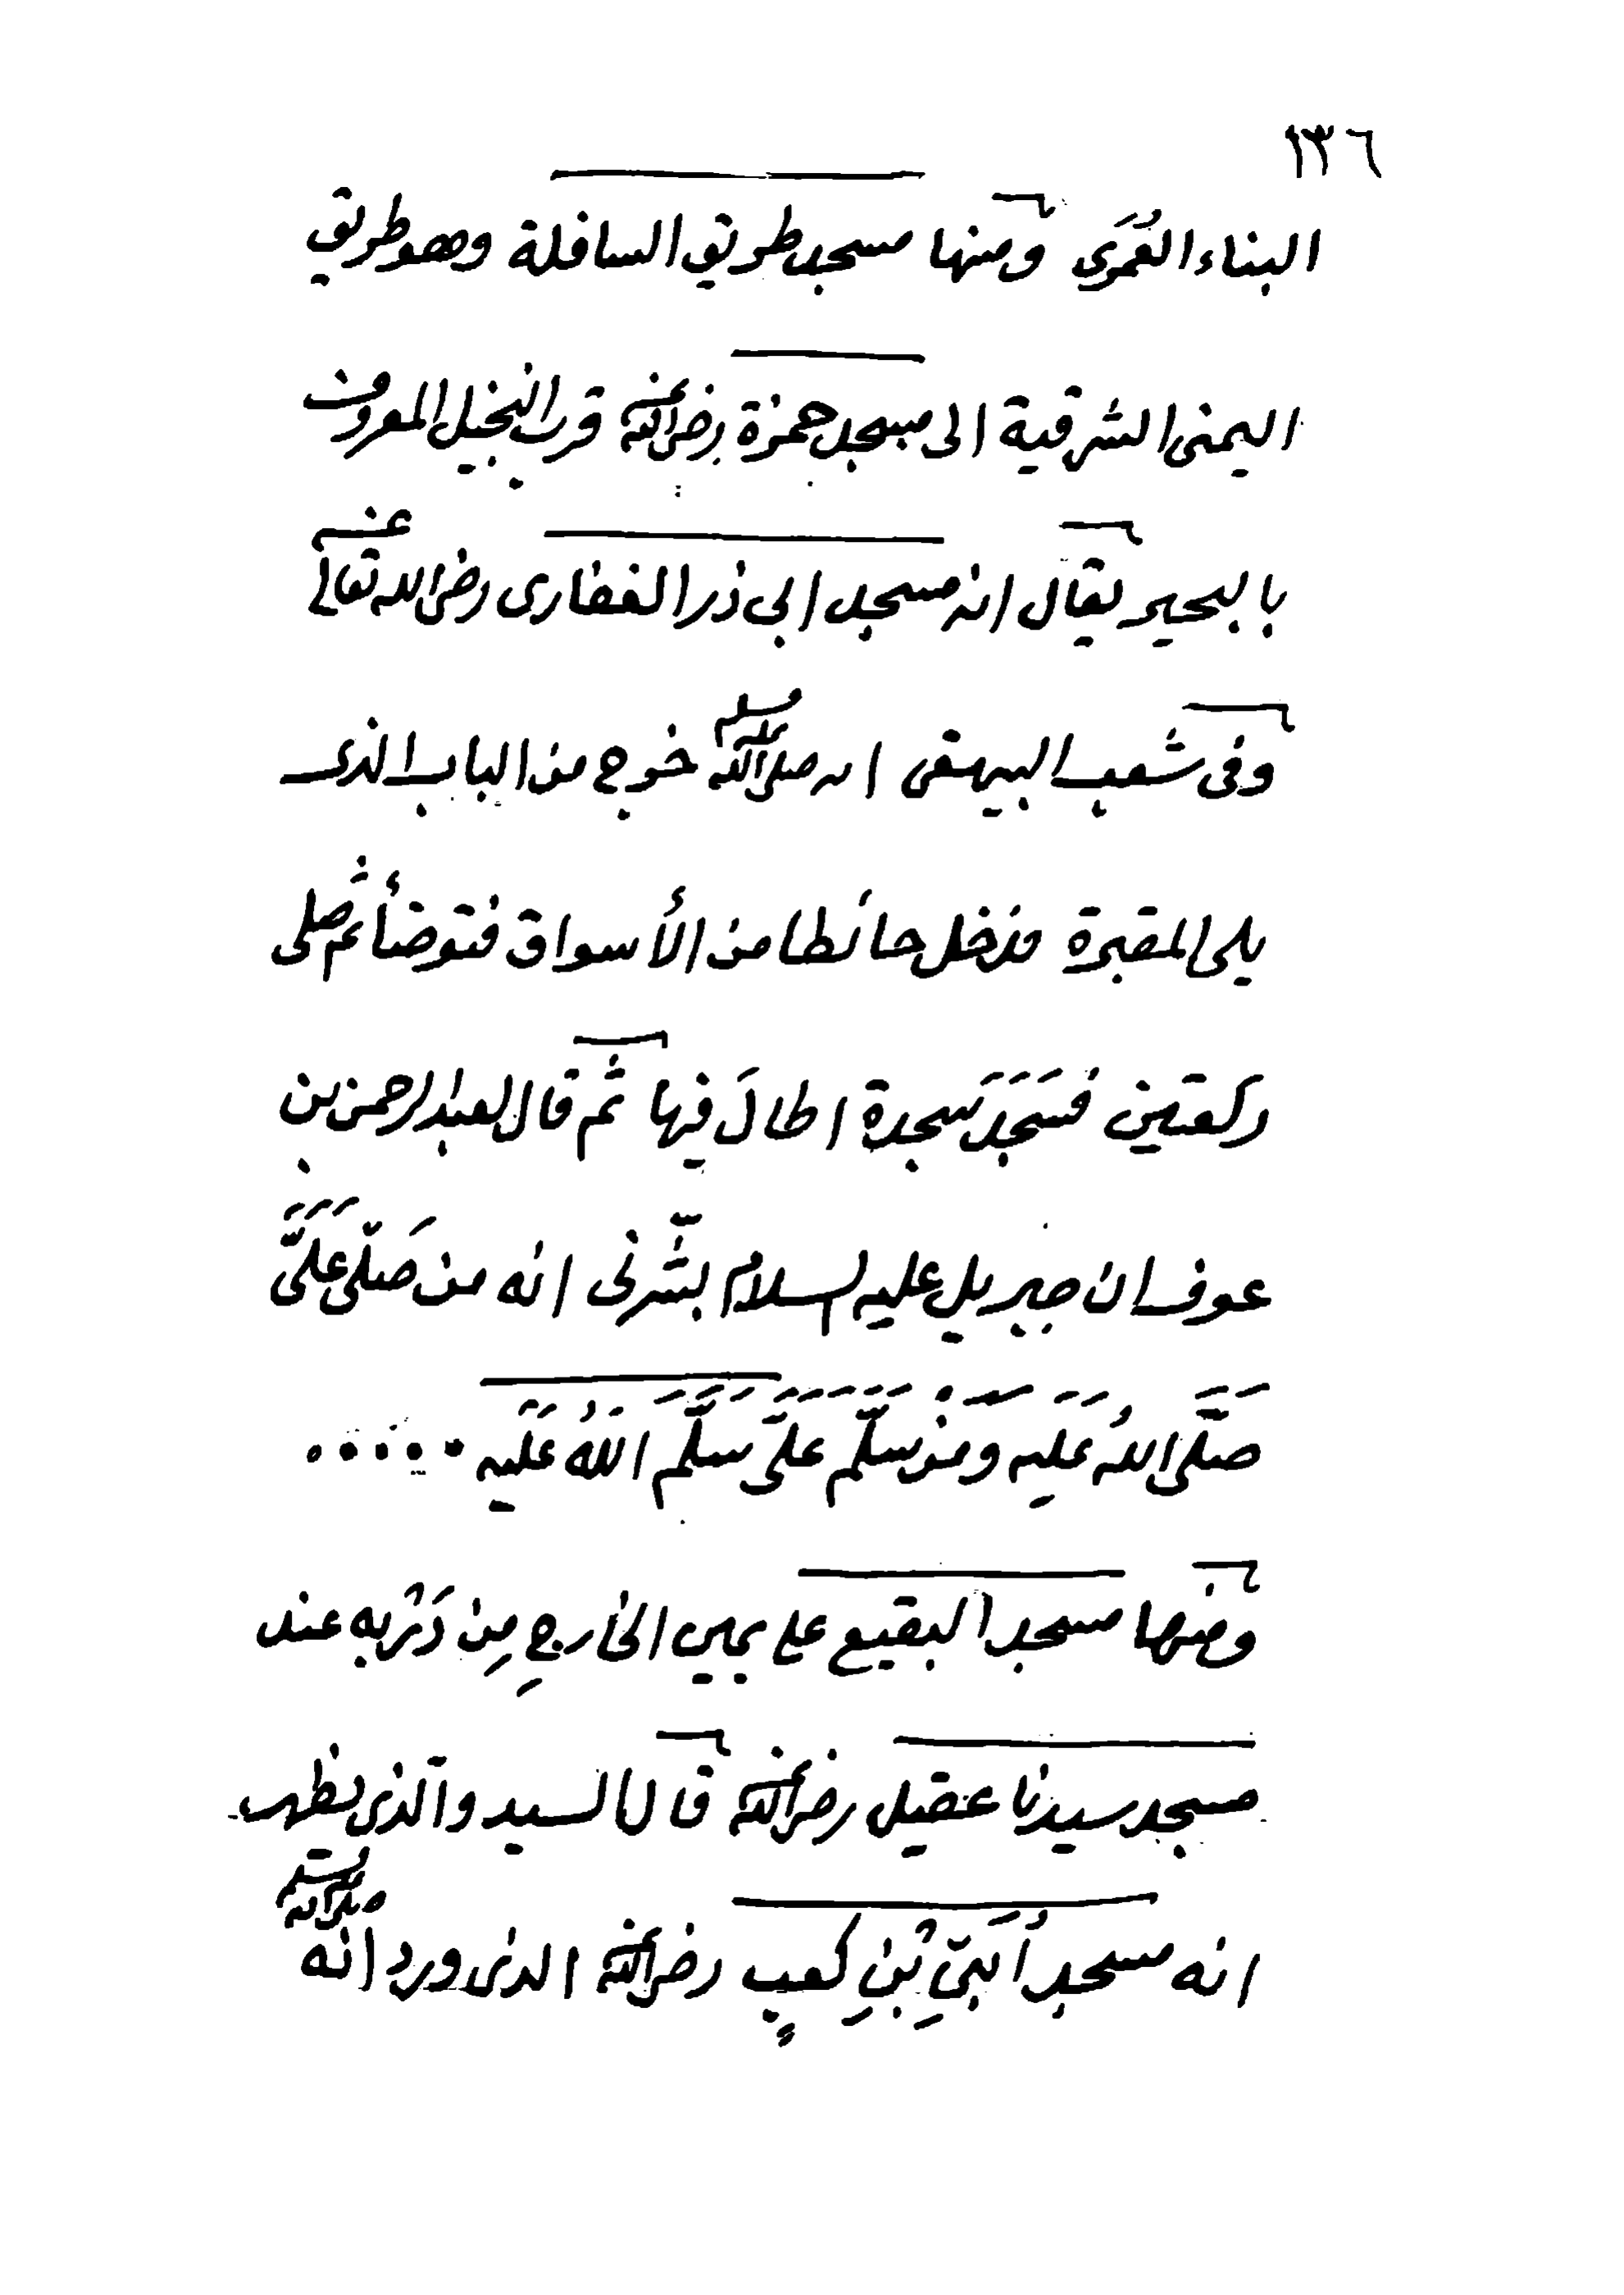 ١٣٦
البناء العُمَرى ومنها مسجد طريق السافلة وهو طريق
اليمنى الشرقية الى مسجد حمزة رضى الله عنه قرب النخيل المعروف
بالبحير يقال انه مسجد ابى ذر الغفارى رضى الله تعالى عنه
وفى شعب البيهقى انه صلى الله عليه وسلم خرج من الباب الذى
يلى المقبرة فدخل حائطا من الأسواق فتوضأ ثم صلى
ركعتين فسَجَدَ سَجدة اطالَ فيها ثم قال لعبد الرحمن بن
عوف ان جبريل عليه السلام بشّرنى انه من صَلّى عَلَىَّ
صَلَّى اللهُ عَلَيه ومَنْ سَلَّم عَلَىَّ سَلَّمَ اللهُ عَلَيه ٠٠٠٠٠
ومنها مسجد البقيع على يمين الخارجِ مِن دَرْبِه عند
مسجد سيدنا عقيل رضى الله عنه قال السيد والذى يظهر
انه مسجد أُبَىِّ بْنِ كعبٍ رضى الله عنه الذى ورد انه صلى الله عليه وسلم